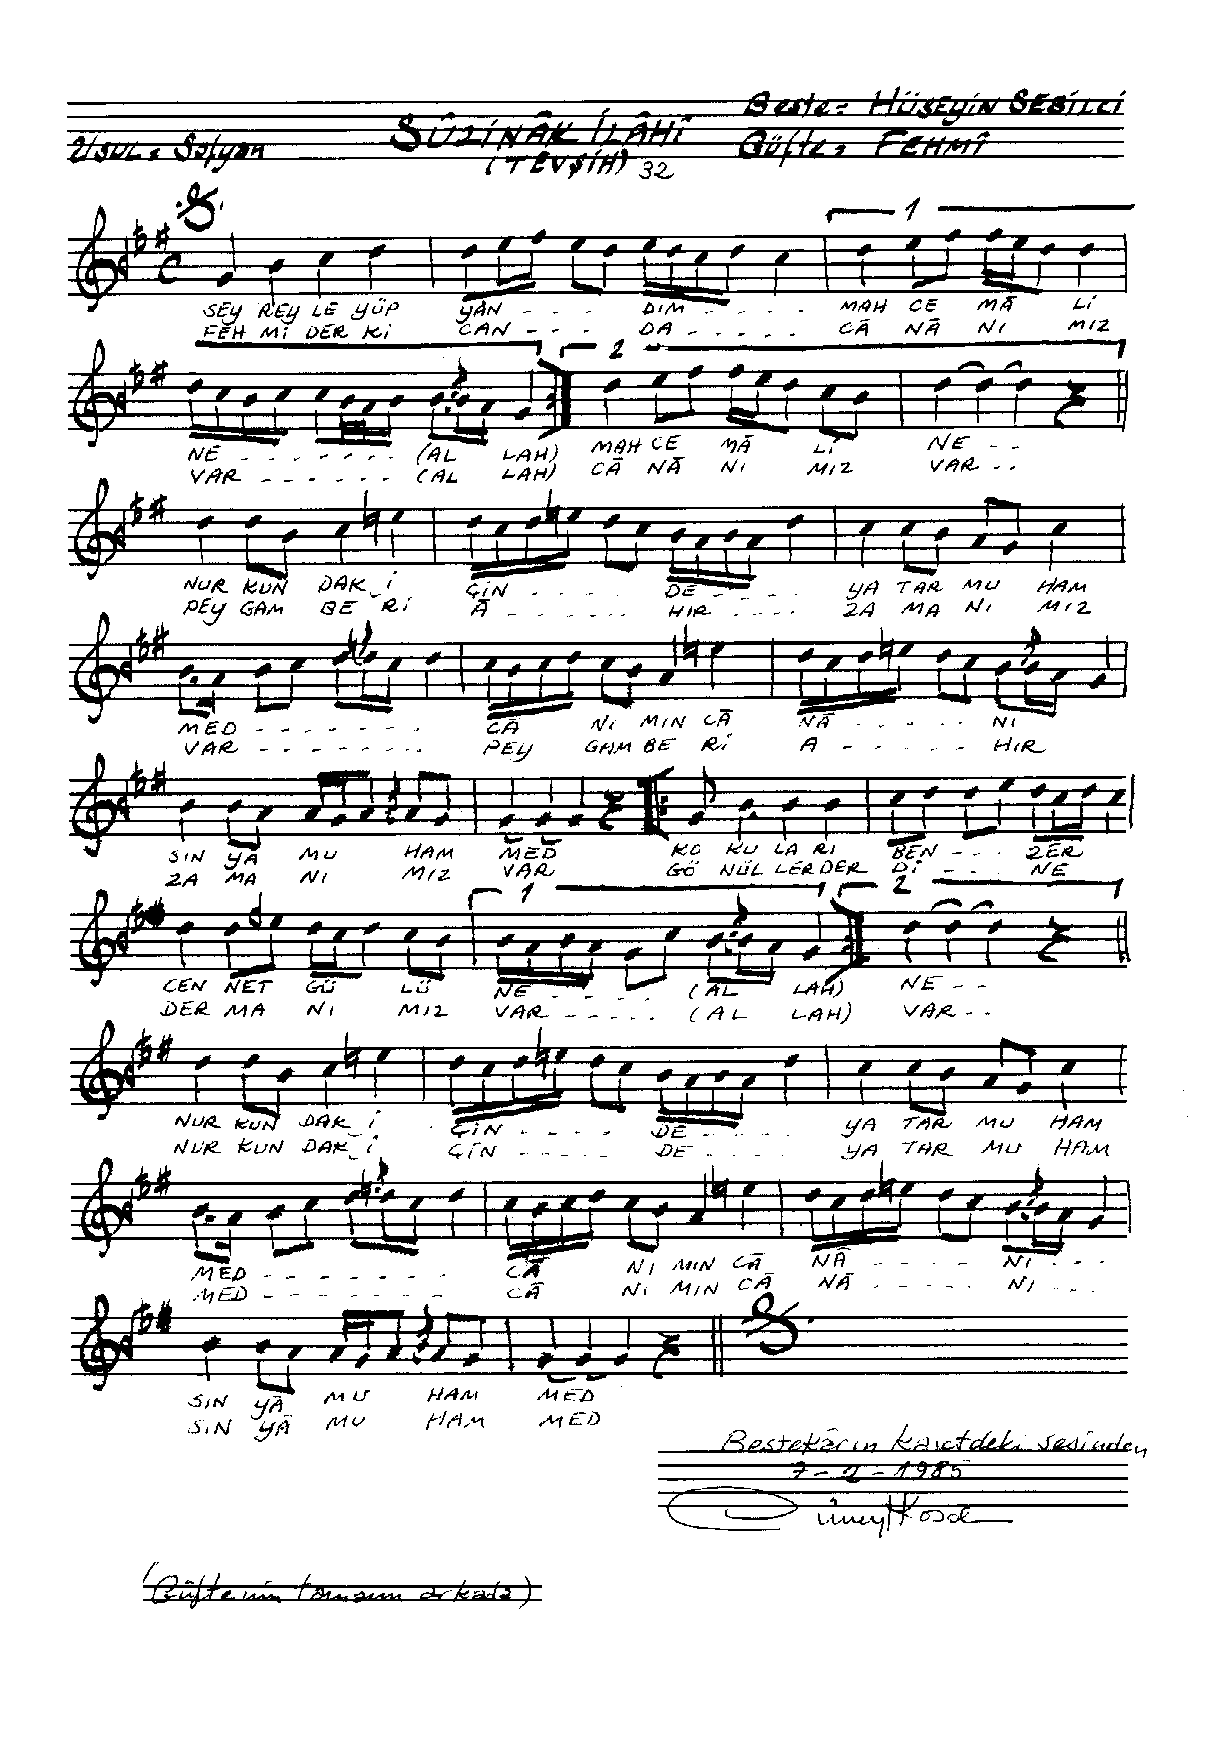 Beste: HÜSEYİN SEBİLCİ
SÛZİNÂK İLÂHİ
USUL: Sofyan
Güfte: FEHMÎ
(TEVŞİH) 32
1
SEY REY LE YÜP YAN - - - - DIM - - - - - MAH CE MÂ LI
FEH Mİ DER Kİ CAN - - - - DA - - - - - - CÂ NÂ NI MIZ
2
NE - - - - - - - (AL LAH) MAH CE MÂ Lİ NE - -
VAR - - - - - - (AL LAH) CÂ NÂ NI MIZ VAR - -
NUR KUN DAK_İ ÇİN - - - - DE - - - - YA TAR MU HAM
PEY GAM BE Rİ Â - - - - - - HIR - - - - ZA MA NI MIZ
MED - - - - - - - CÂ NI MIN CÂ NÂ - - - - - - NI
VAR - - - - - - - PEY GAM BE Rİ A - - - - - - HIR
SIN YÂ MU HAM MED KO KU LA RI BEN - - - ZER
ZA MA NI MIZ VAR GÖ NÜL LER DER Dİ - - - NE
1 2
CEN NET GÜ LÜ NE - - - - - (AL LAH) NE - -
DER MA NI MIZ VAR - - - - - (AL LAH) VAR - -
NUR KUN DAK_İ ÇİN - - - - DE - - - - YA TAR MU HAM
NUR KUN DAK_İ ÇİN - - - - - DE - - - - YA TAR MU HAM
MED - - - - - - - - CÂ NI MIN CÂ NÂ - - - - - NI - - -
MED - - - - - - - - CÂ NI MIN CÂ NÂ - - - - - NI - - -
SIN YÂ MU HAM MED
SIN YÂ MU HAM MED
Bestekârın kasetdeki sesinden
7-2-1985
(Güftenin tamamı arkada)